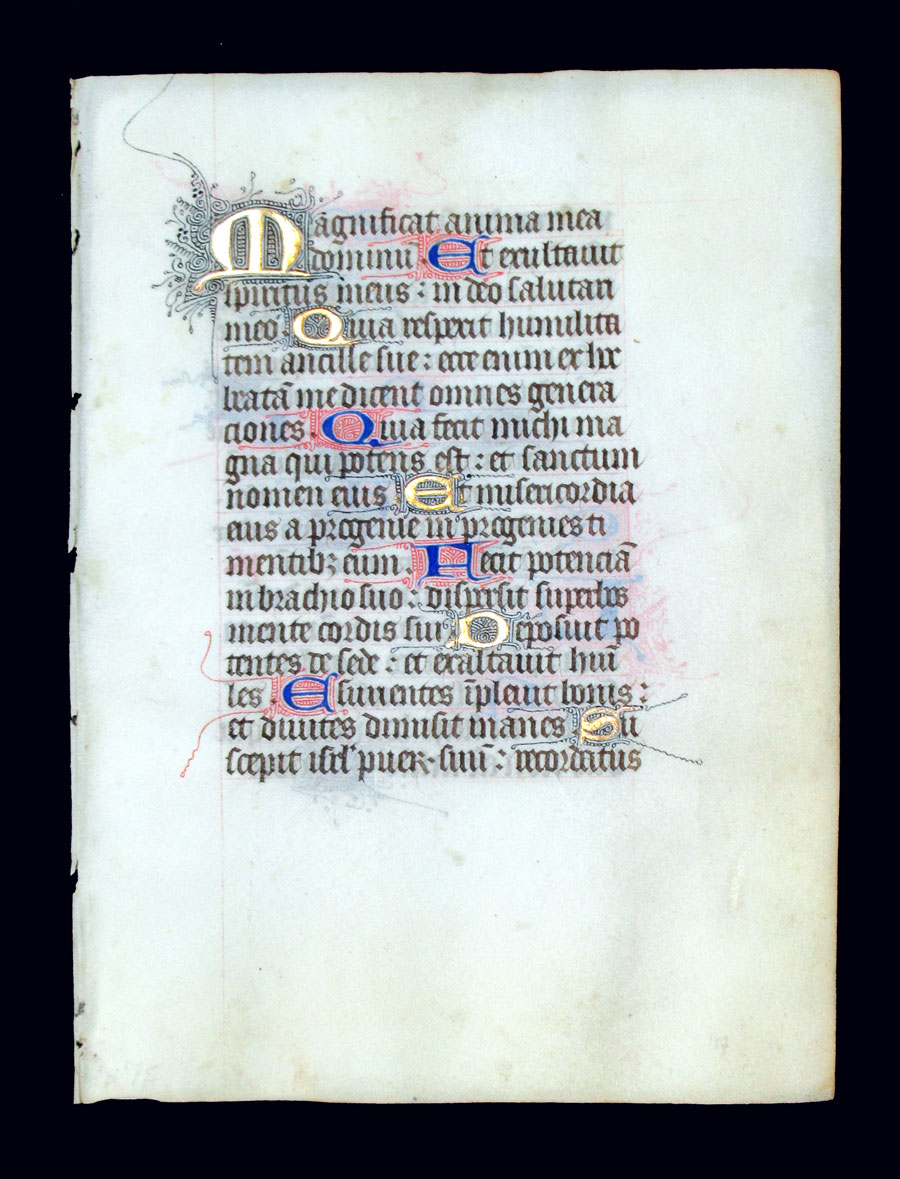 Māgnificat anima mea
dominū Et exultauit
spiritus meus : in deo salutari
meo Quia respexit humilita
tem ancille sue : ecce enim ex hoc
beatā me dicent omnes genera
ciones Quia fecit michi ma
gna qui potens est : et sanctum
nomen eius Et misericordia
eius a progenie in progenies ti
mentibꝫ eum . Fecit potenciā
in brachio suo : dispersit superbos
mente cordis sui Deposuit po
tentes de sede : et exaltauit hūi
les Esurientes īpleuit bonis :
et diuites dimisit inanes Su
scepit isrl' puer . suū : recordatus